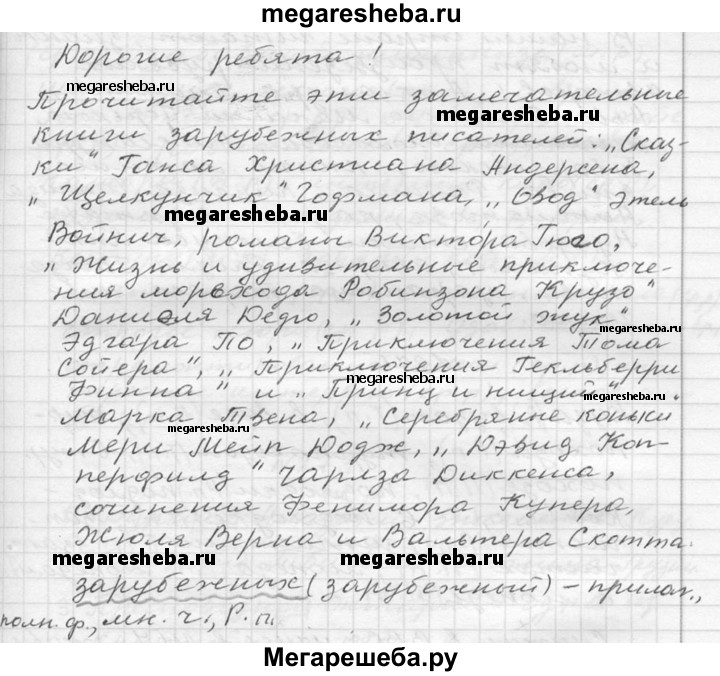 megaresheba.ru
Дорогие ребята!
megaresheba.ru
Прочитайте эти замечательные
megaresheba.ru
книги зарубежных писателей: „Сказ-
ки" Ганса Христиана Андерсена,
„Щелкунчик" Гофмана, „Овод" Этель
megaresheba.ru
Войнич, романы Виктора Гюго,
„Жизнь и удивительные приключе-
ния морехода Робинзона Крузо"
Даниеля Дефо, „Золотой жук"
megaresheba.ru
Эдгара По, „Приключения Тома
Сойера", „Приключения Гекльберри
megaresheba.ru
Финна" и „Принц и нищий"
Марка Твена, „Серебряные коньки"
megaresheba.ru
Мери Мейп Додж, „Дэвид Коп-
перфилд" Чарлза Диккенса,
сочинения Фенимора Купера,
Жюля Верна и Вальтера Скотта.
megaresheba.ru megaresheba.ru
зарубежных (зарубежный) – прилаг.,
полн. ф., мн. ч., Р. п.
Мегарешеба.ру